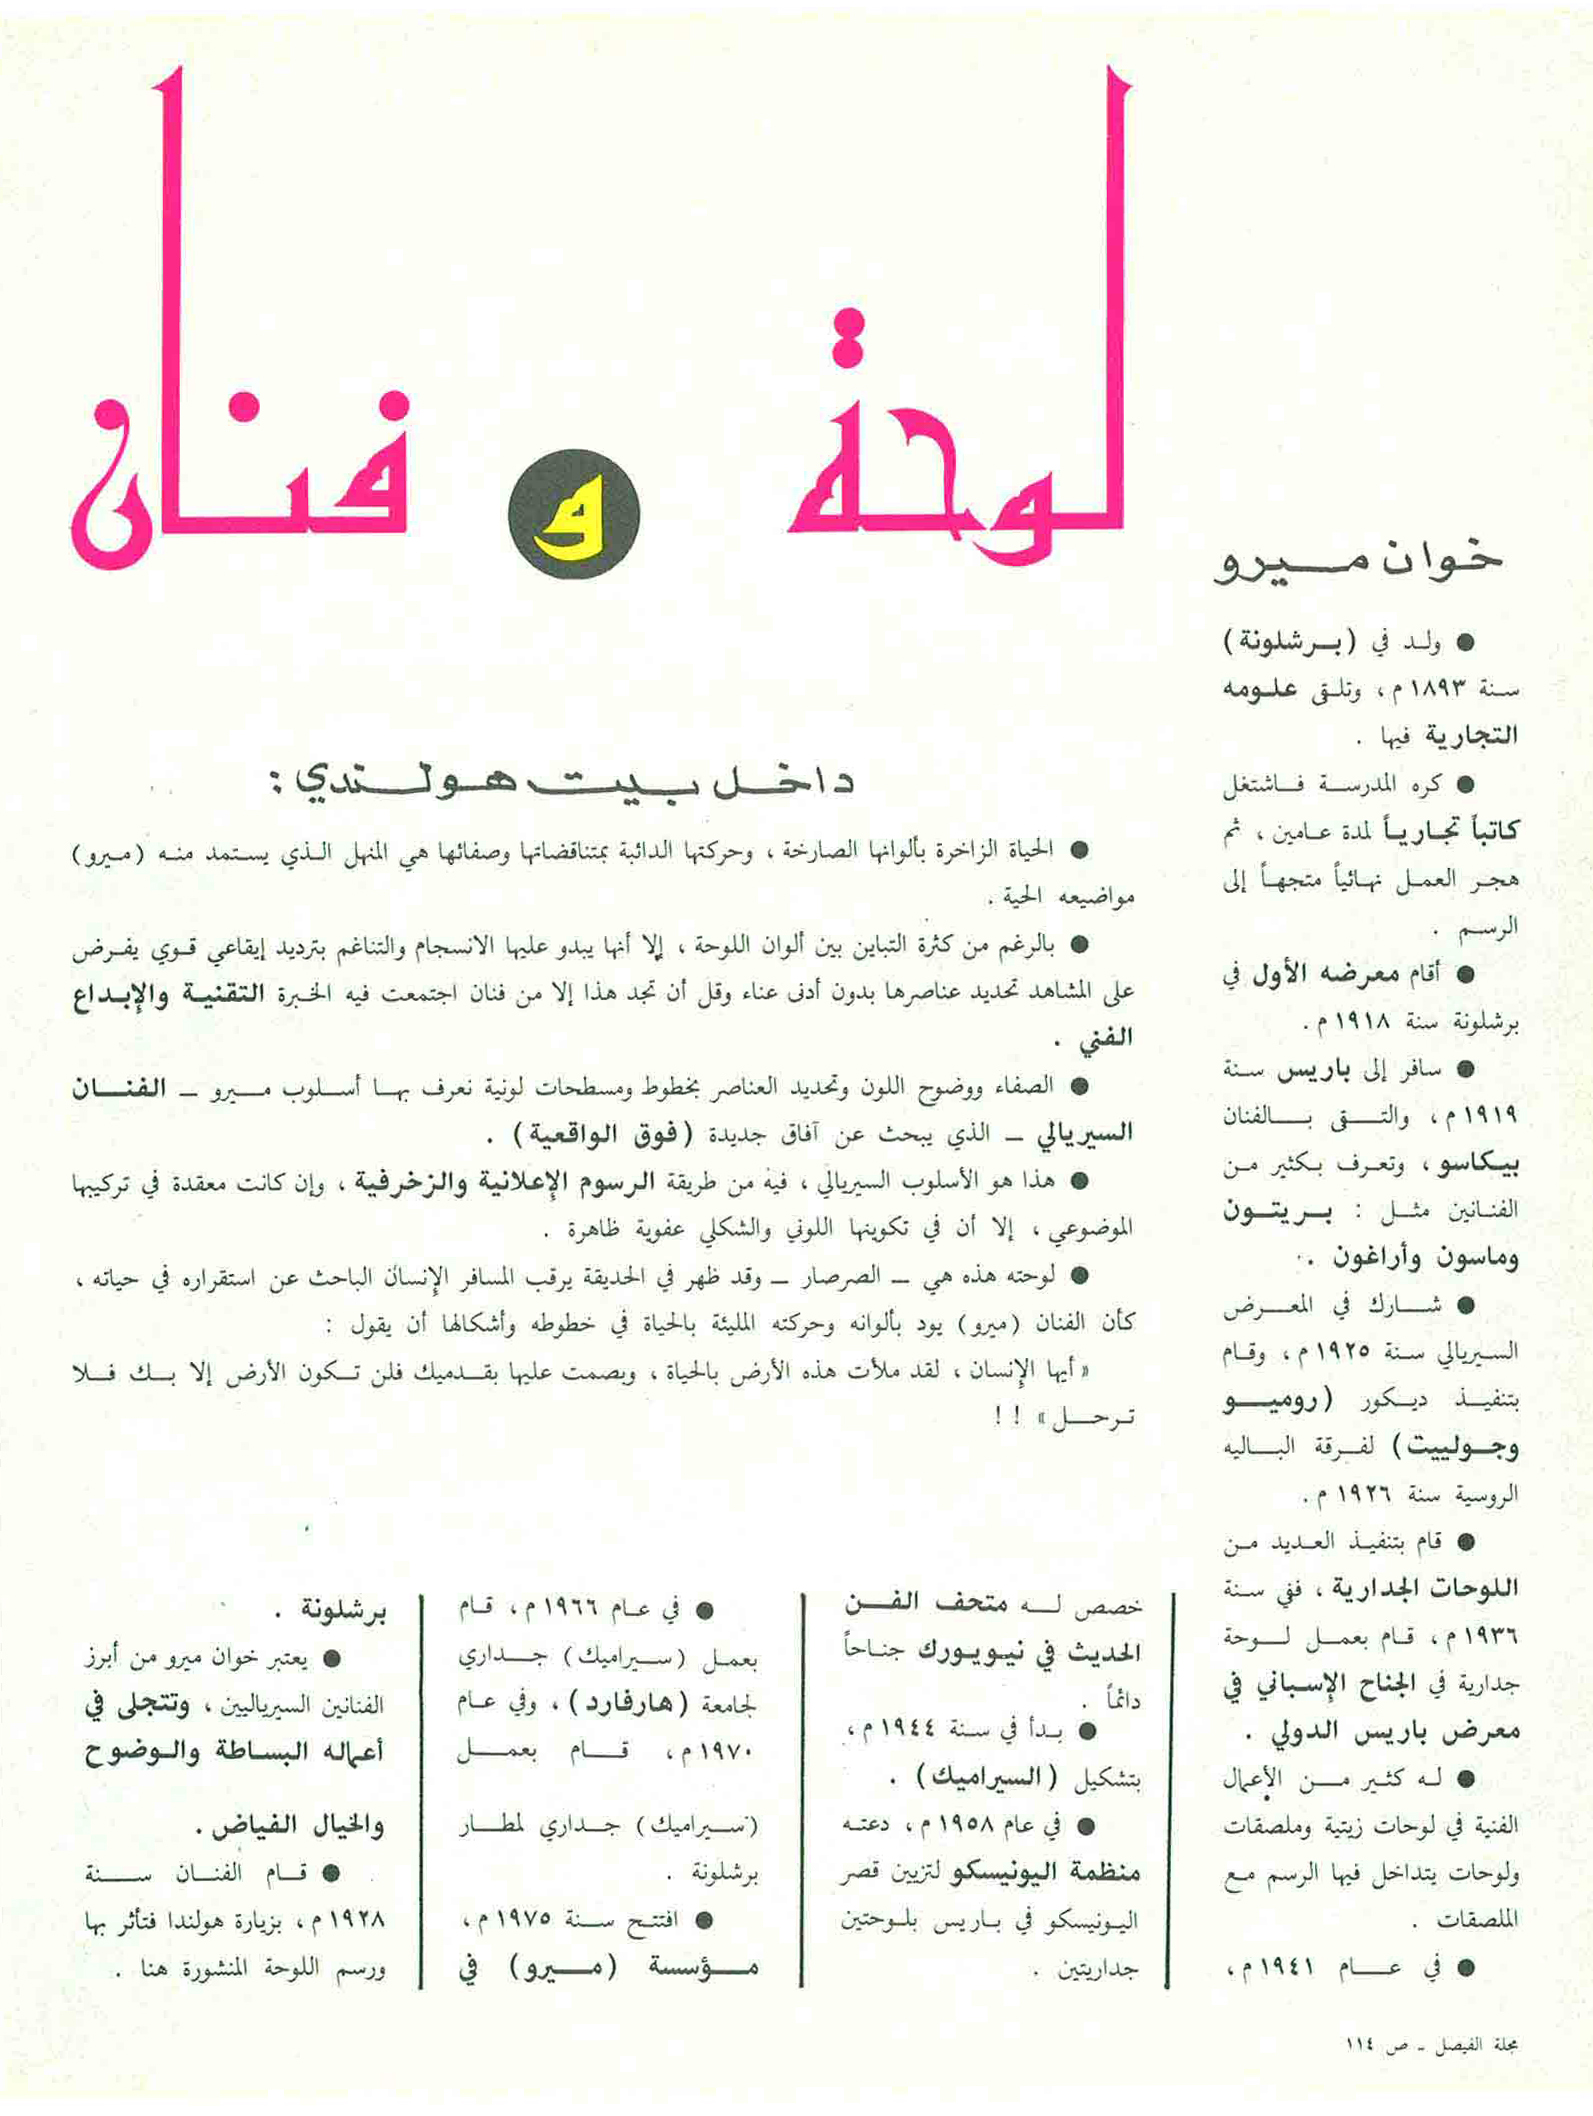 لوحة و فنان
خوان ميرو
● ولد في (برشلونة)
سنة ١٨٩٣ م ، وتلقى علومه
التجارية فيها .
● كره المدرسة فاشتغل
كاتباً تجارياً لمدة عامين ، ثم
هجر العمل نهائياً متجهاً إلى
الرسم .
● أقام معرضه الأول في
برشلونة سنة ١٩١٨ م .
● سافر إلى باريس سنة
١٩١٩ م ، والتقى بالفنان
بيكاسو ، وتعرف بكثير من
الفنانين مثل : بريتون
وماسون وأراغون .
● شارك في المعرض
السيريالي سنة ١٩٢٥ م ، وقام
بتنفيذ ديكور (روميو
وجولييت) لفرقة الباليه
الروسية سنة ١٩٢٦ م .
● قام بتنفيذ العديد من
اللوحات الجدارية ، ففي سنة
١٩٣٦ م ، قام بعمل لوحة
جدارية في الجناح الإسباني في
معرض باريس الدولي .
● له كثير من الأعمال
الفنية في لوحات زيتية وملصقات
ولوحات يتداخل فيها الرسم مع
الملصقات .
● في عام ١٩٤١ م ،
خصص له متحف الفن
الحديث في نيويورك جناحاً
دائماً .
● بدأ في سنة ١٩٤٤ م ،
بتشكيل (السيراميك) .
● في عام ١٩٥٨ م ، دعته
منظمة اليونيسكو لتزيين قصر
اليونيسكو في باريس بلوحتين
جداريتين .
● في عام ١٩٦٦ م ، قام
بعمل (سيراميك) جداري
لجامعة (هارفارد) ، وفي عام
١٩٧٠ م ، قام بعمل
(سيراميك) جداري لمطار
برشلونة .
● افتتح سنة ١٩٧٥ م ،
مؤسسة (ميرو) في
برشلونة .
● يعتبر خوان ميرو من أبرز
الفنانين السيرياليين ، وتتجلى في
أعماله البساطة والوضوح
والخيال الفياض .
● قام الفنان سنة
١٩٢٨ م ، بزيارة هولندا فتأثر بها
ورسم اللوحة المنشورة هنا .
داخل بيت هولندي :
● الحياة الزاخرة بألوانها الصارخة ، وحركتها الدائبة بمتناقضاتها وصفائها هي المنهل الذي يستمد منه (ميرو)
مواضيعه الحية .
● بالرغم من كثرة التباين بين ألوان اللوحة ، إلا أنها يبدو عليها الانسجام والتناغم بترديد إيقاعي قوي يفرض
على المشاهد تحديد عناصرها بدون أدنى عناء وقل أن تجد هذا إلا من فنان اجتمعت فيه الخبرة التقنية والإبداع
الفني .
● الصفاء ووضوح اللون وتحديد العناصر بخطوط ومسطحات لونية نعرف بها أسلوب ميرو ــ الفنان
السيريالي ــ الذي يبحث عن آفاق جديدة (فوق الواقعية) .
● هذا هو الأسلوب السيريالي ، فيه من طريقة الرسوم الإعلانية والزخرفية ، وإن كانت معقدة في تركيبها
الموضوعي ، إلا أن في تكوينها اللوني والشكلي عفوية ظاهرة .
● لوحته هذه هي ــ الصرصار ــ وقد ظهر في الحديقة يرقب المسافر الإنسان الباحث عن استقراره في حياته ،
كأن الفنان (ميرو) يود بألوانه وحركته المليئة بالحياة في خطوطه وأشكالها أن يقول :
« أيها الإنسان ، لقد ملأت هذه الأرض بالحياة ، وبصمت عليها بقدميك فلن تكون الأرض إلا بك فلا
ترحل » ! !
مجلة الفيصل ـ ص ١١٤